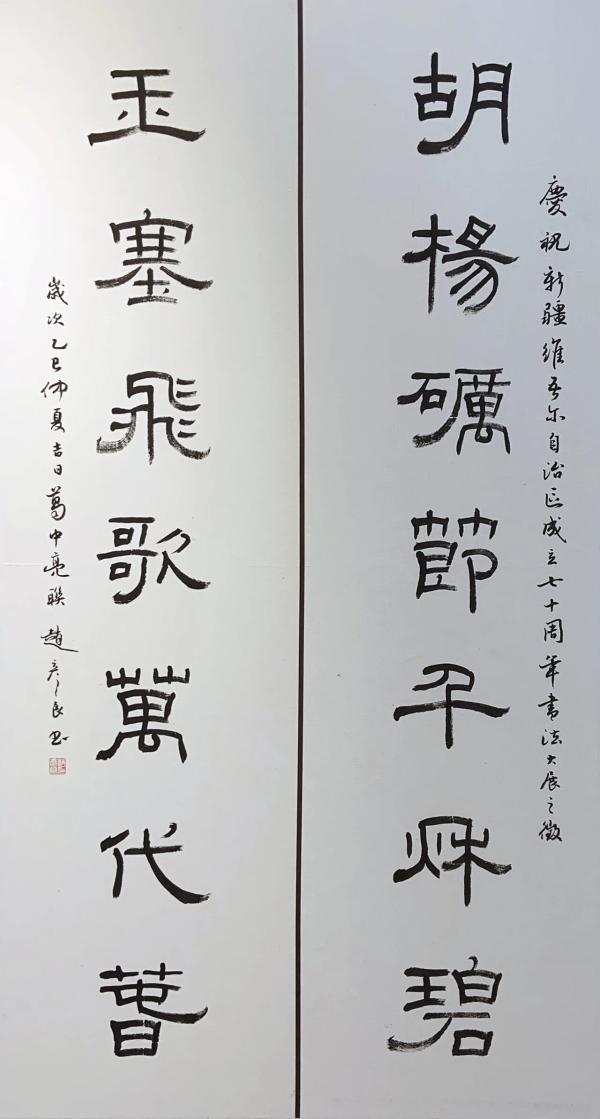 慶祝新疆維吾尔自治区成立七十周年書法大展之徵
胡楊礪節千秌碧
玉塞飛歌萬代萅
歲次乙巳仲夏吉日葛中亮聯 趙彦良书